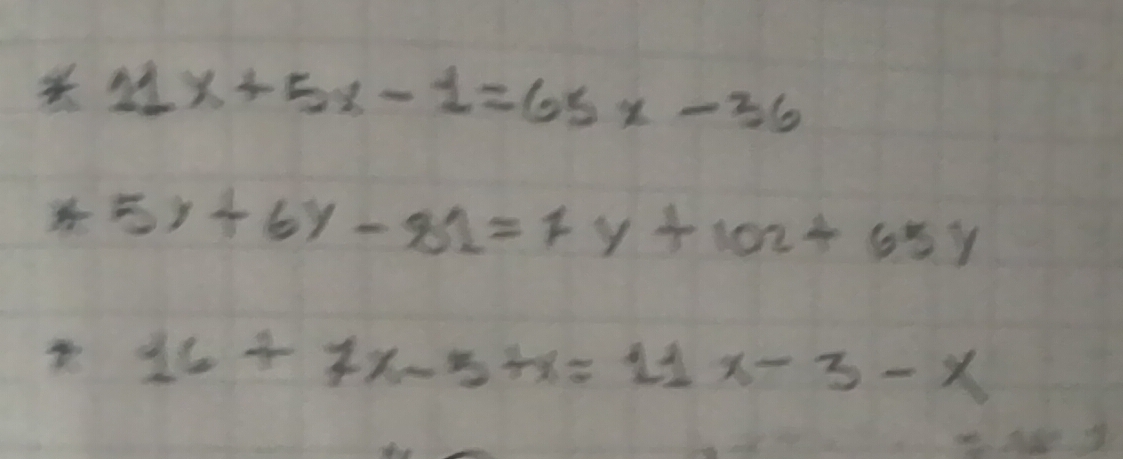 * 11x+5x-1=65x-36
* 5y+6y-81=7y+102+65y
* 16+7x-5+x=11x-3-x